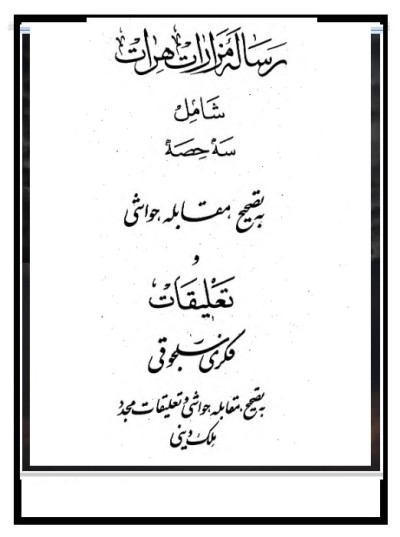 رسالهٔ مزارات هرات
شامل
سه حصهٔ
به تصحیح مقابله حواشی
و
تعلیقات
فکری سلجوقی
به تصحیح، مقابله حواشی و تعلیقات مجدد
ملک دینی